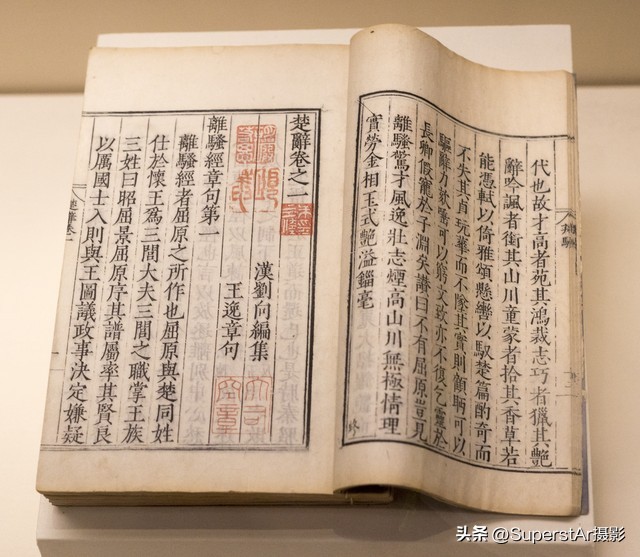 代也故才高者苑其鴻裁志巧者獵其艷
辭吟諷者銜其山川童蒙者拾其香草若
能憑軾以倚雅頌懸轡以馭楚篇酌奇而
不失其貞玩華而不墜其實則顧眄可以
驅辭力欬唾可以窮文致亦不復乞靈於
長卿假寵於子淵矣讚曰不有屈原豈見
離騷驚才風逸壯志煙高山川無極情理
實勞金相玉式艷溢錙毫
終
楚辭卷之一
漢劉向編集
王逸章句
離騷經章句第一
離騷經者屈原之所作也屈原與楚同姓
仕於懷王爲三閭大夫三閭之職掌王族
三姓曰昭屈景屈原序其譜屬率其賢良
以厲國士入則與王圖議政事決定嫌疑
头条 @SuperstAr摄影